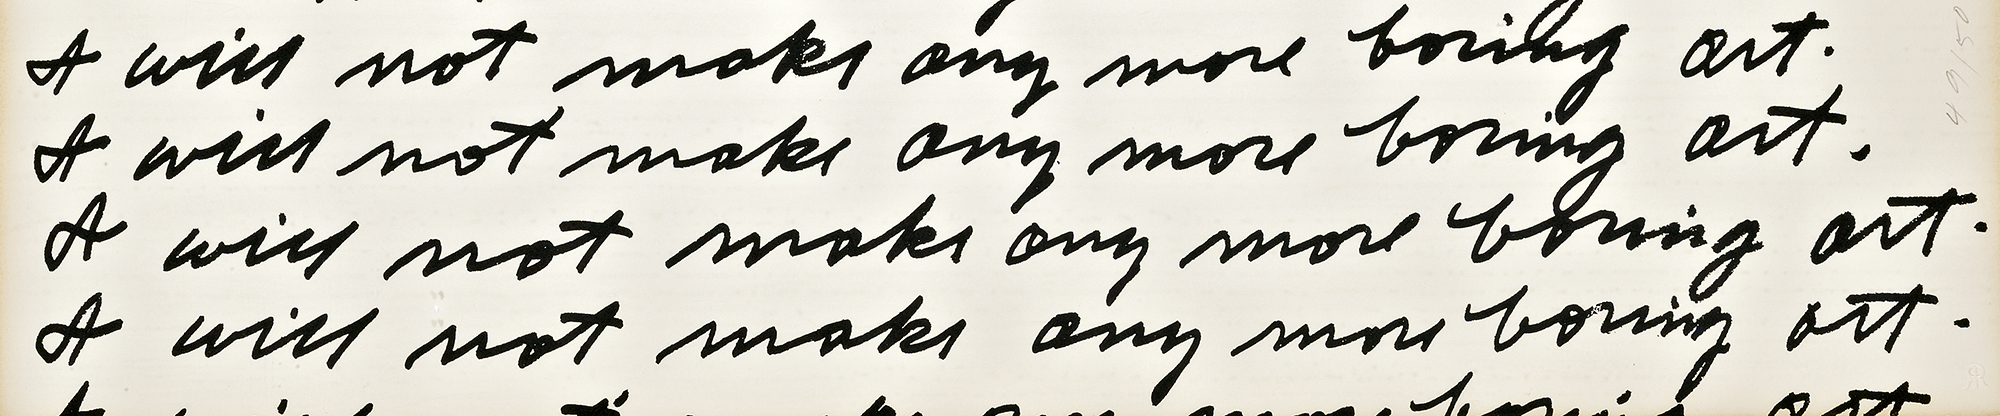 I will not make any more boring art.
I will not make any more boring art.
I will not make any more boring art.
I will not make any more boring art.
I will not make any more boring art
49/50